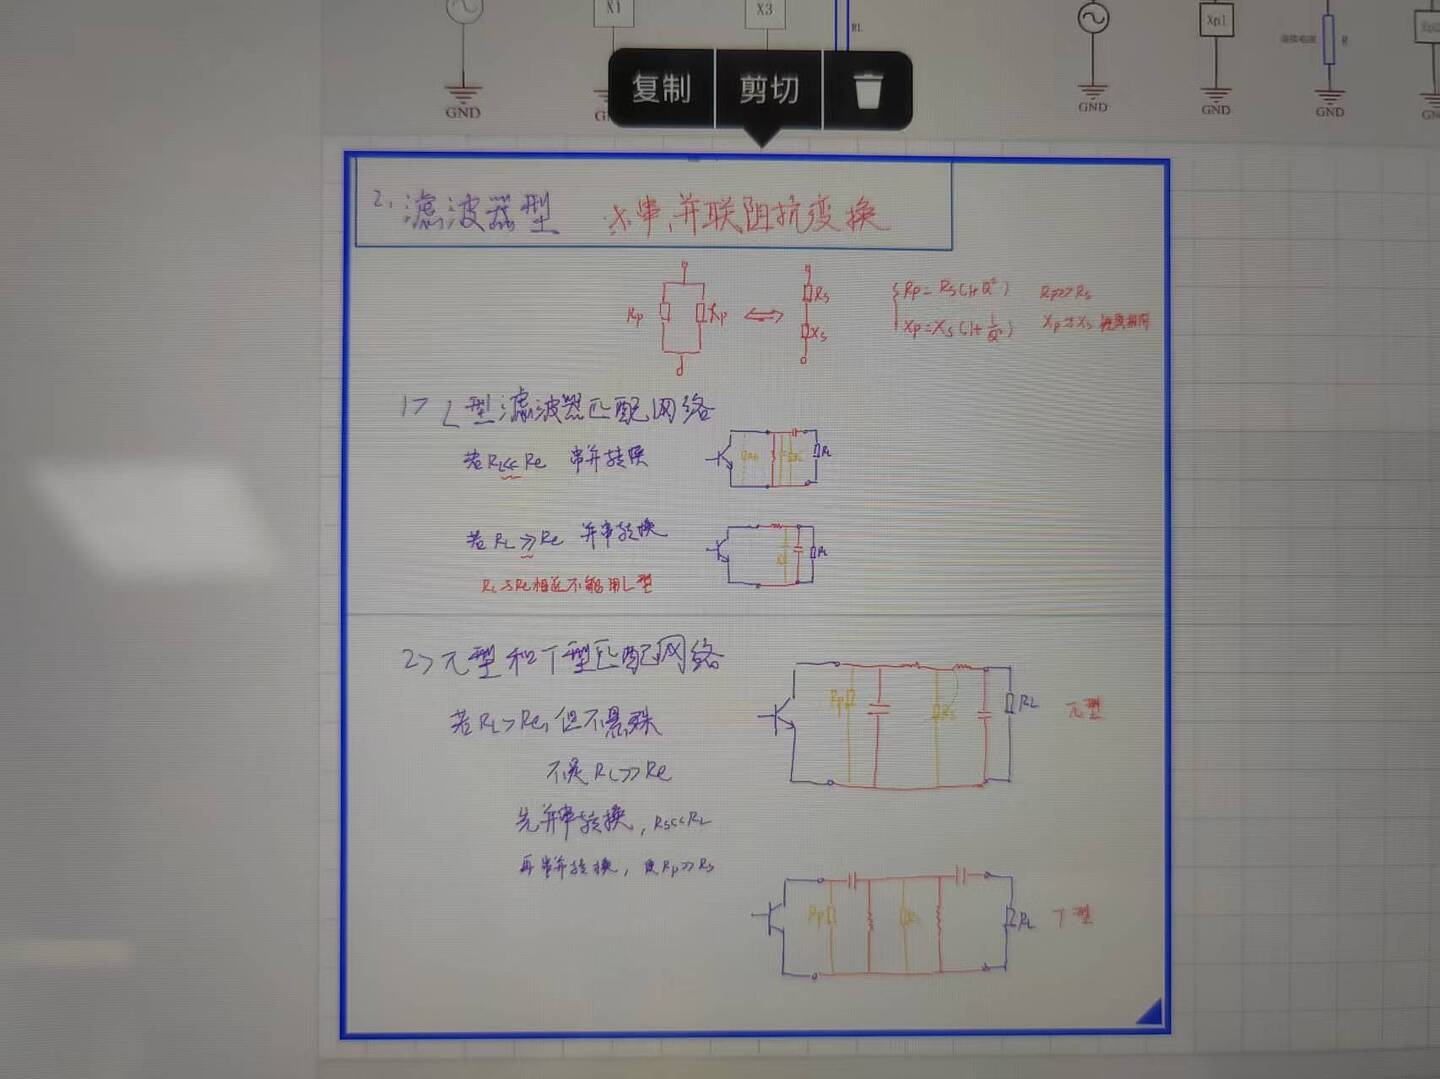 X1
X3
RL
Xp1
R
GND
GND
GND
GND
GND
复制
剪切
2. 滤波器型
串、并联阻抗变换
Rp
Xp
Rs
Xs
Rp=Rs(1+Q²) Rp>Rs
Xp=Xs(1+1/Q²)
1> L型滤波器匹配网络
若RL<<Re 串并转换
RL
若RL>>Re 并串转换
RL
RL与Re相近不能用L型
2> π型和T型匹配网络
若RL>Re, 但不悬殊
不是RL>>Re
先并串转换, Rs<<RL
再串并转换, 使Rp>>Rs
Rp
Rs
RL
π型
Rp
RL
T型